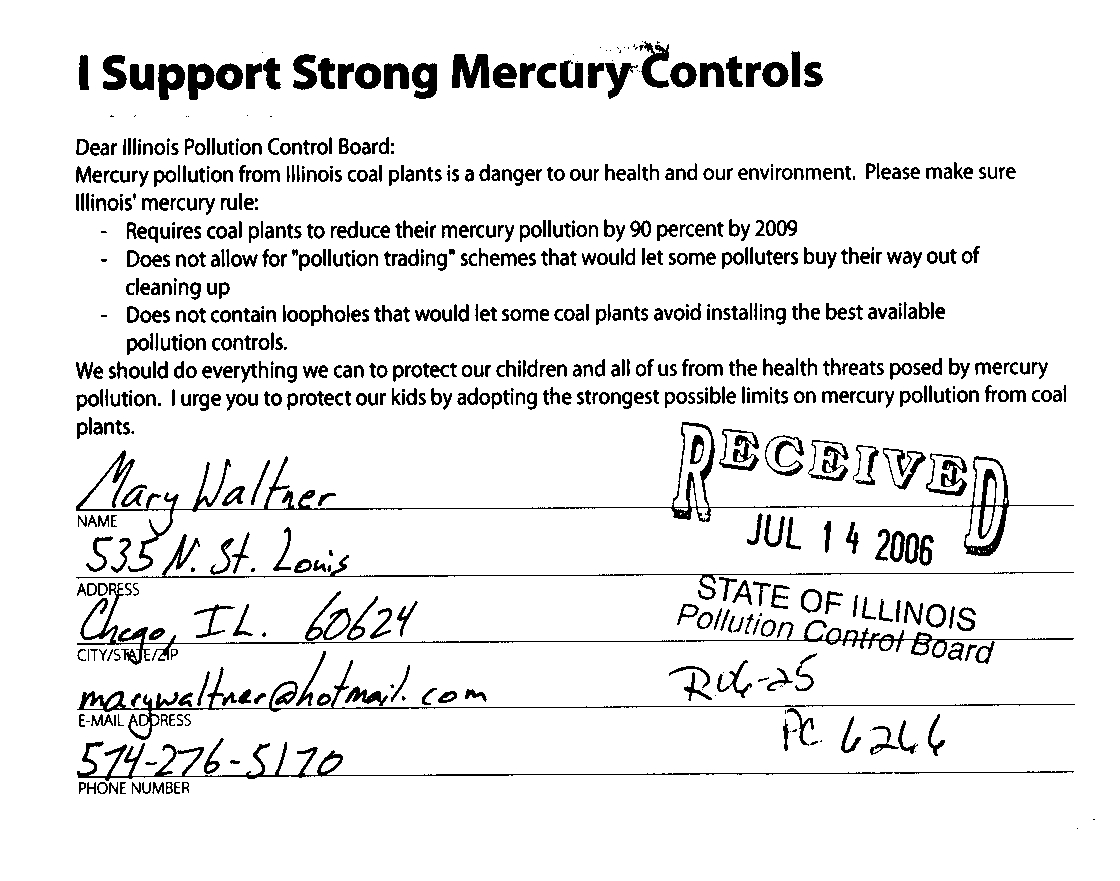 I Support Strong Mercury Controls
Dear Illinois Pollution Control Board:
Mercury pollution from Illinois coal plants is a danger to our health and our environment. Please make sure
Illinois' mercury rule:
- Requires coal plants to reduce their mercury pollution by 90 percent by 2009
- Does not allow for "pollution trading" schemes that would let some polluters buy their way out of
cleaning up
- Does not contain loopholes that would let some coal plants avoid installing the best available
pollution controls.
We should do everything we can to protect our children and all of us from the health threats posed by mercury
pollution. I urge you to protect our kids by adopting the strongest possible limits on mercury pollution from coal
plants.
RECEIVED
Mary Waltner
NAME
JUL 14 2006
535 N. St. Louis
ADDRESS
STATE OF ILLINOIS
Chcgo, IL. 60624
Pollution Control Board
CITY/STATE/ZIP
marywaltner@hotmail.com
R06-25
E-MAIL ADDRESS
PC 6266
574-276-5170
PHONE NUMBER